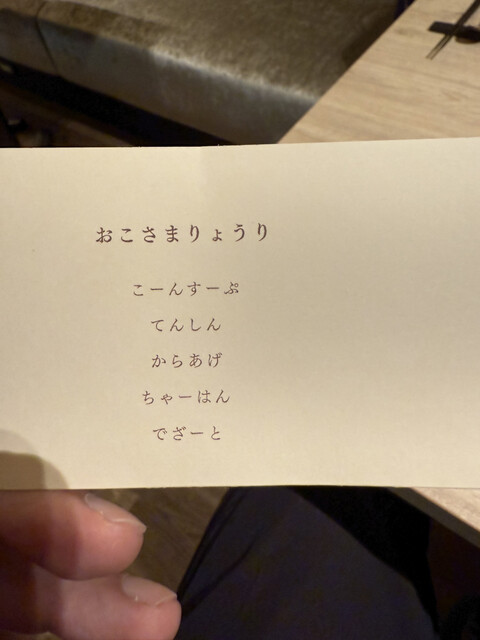 おこさまりょうり
こーんすーぷ
てんしん
からあげ
ちゃーはん
でざーと